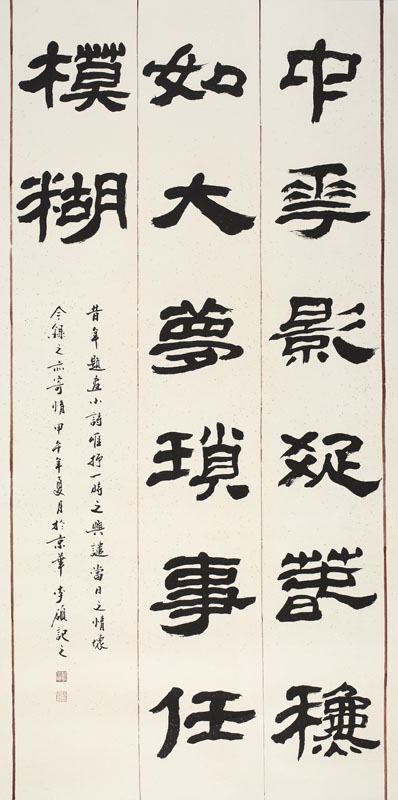 中華影
如大夢瑣事任
模糊
昔年題畫小詩惟抒一時之興遣當日之情懷
今錄之亦寄情甲午年夏月於京華李記之